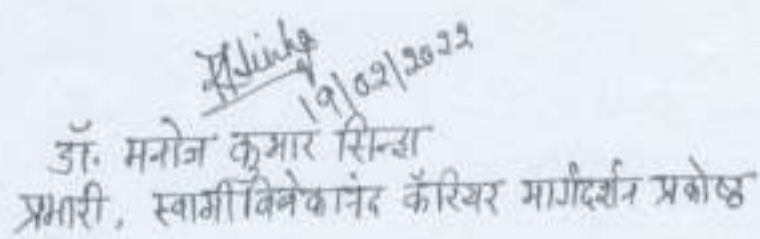 19/02/2022
डॉ. मनोज कुमार सिन्हा
प्रभारी, स्वामी विवेकानंद कॅरियर मार्गदर्शन प्रकोष्ठ